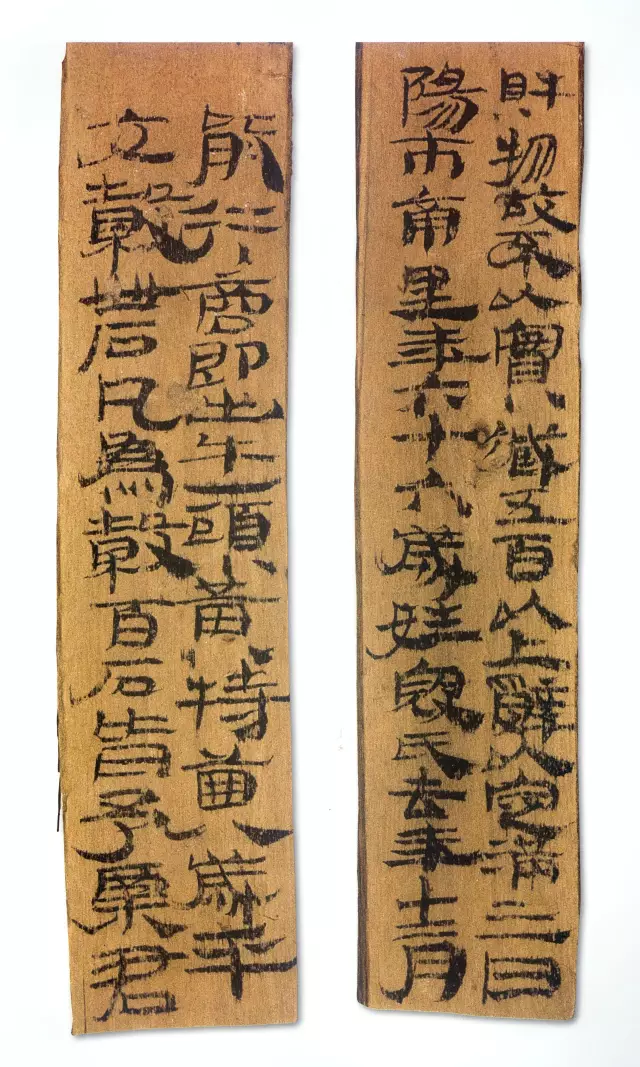 財物故不以實臧五百以上辭以定滿三日
陽市南里年六十六歲姓寇氏去年十二月
能行商即出牛一頭黃特齒八歲平
交穀卌石凡為穀百石皆予粟君